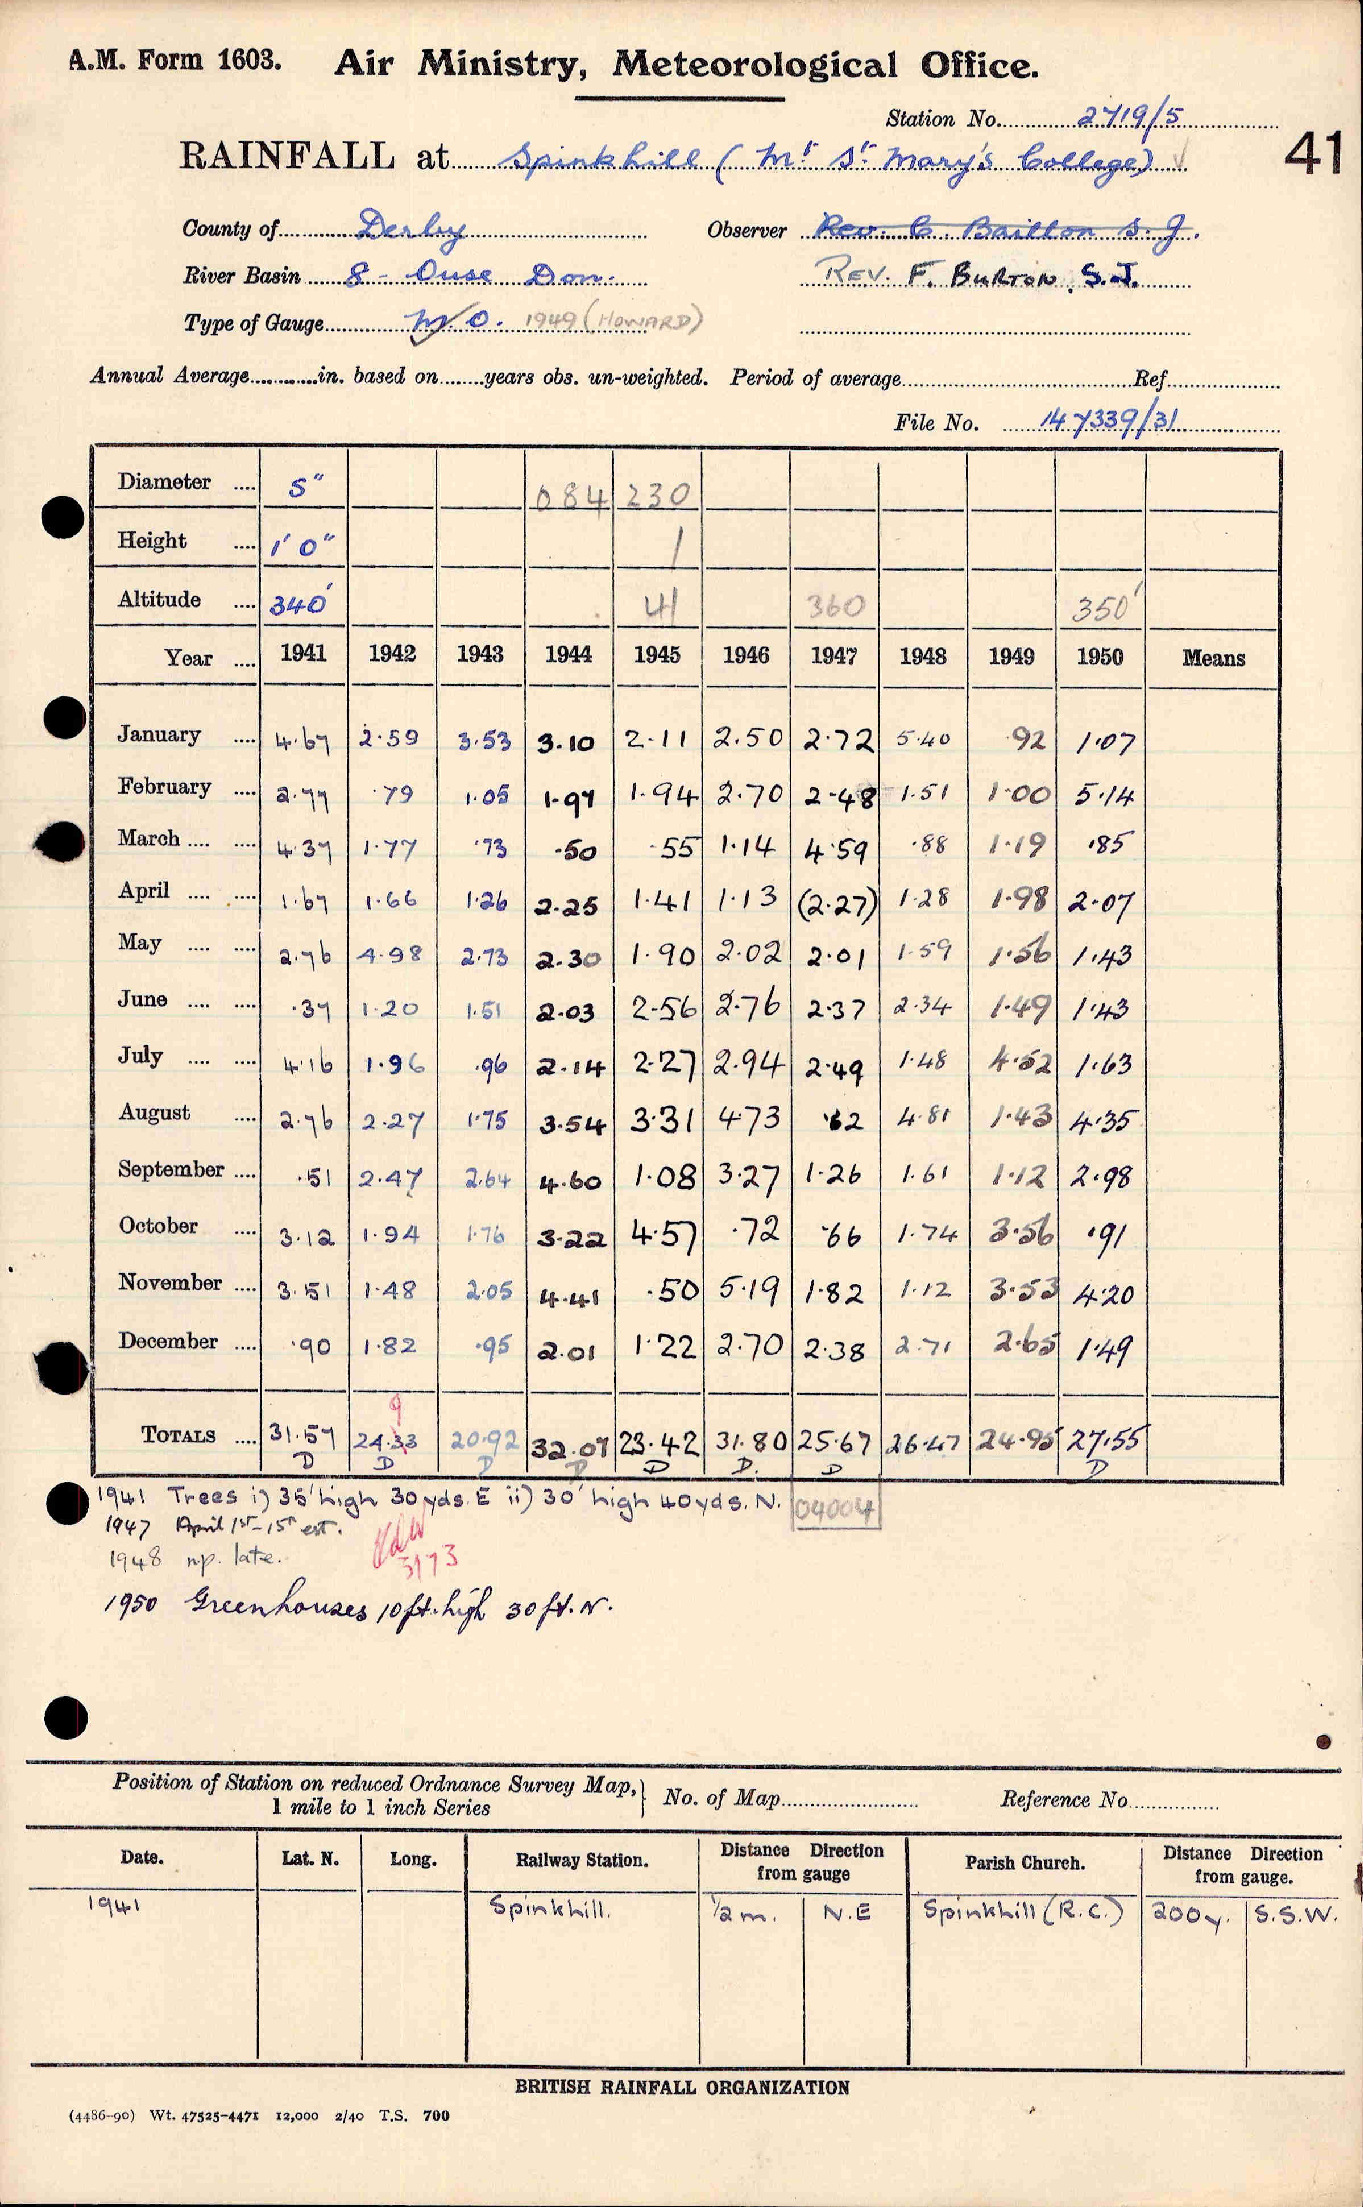 A.M. Form 1603. Air Ministry, Meteorological Office.
Station No. 2719/5
RAINFALL at Spinkhill (Mt St Mary's College) 41
County of Derby Observer Rev. C. Bailton S.J.
River Basin 8 - Ouse Don. REV. F. BURTON. S.J.
Type of Gauge M.O. 1949 (HOWARD)
Annual Average in. based on years obs. un-weighted. Period of average Ref
File No. 147339/31
Diameter .... 5" 084 230
Height .... 1' 0" 1
Altitude .... 340' 41 360 350'
Year .... 1941 1942 1943 1944 1945 1946 1947 1948 1949 1950 Means
January .... 4.67 2.59 3.53 3.10 2.11 2.50 2.72 5.40 .92 1.07
February .... 2.77 .79 1.05 1.97 1.94 2.70 2.48 1.51 1.00 5.14
March .... .... 4.37 1.77 .73 .50 .55 1.14 4.59 .88 1.19 .85
April .... .... 1.67 1.66 1.26 2.25 1.41 1.13 (2.27) 1.28 1.98 2.07
May .... .... 2.76 4.98 2.73 2.30 1.90 2.02 2.01 1.59 1.56 1.43
June .... .... .37 1.20 1.51 2.03 2.56 2.76 2.37 2.34 1.49 1.43
July .... .... 4.16 1.96 .96 2.14 2.27 2.94 2.49 1.48 4.52 1.63
August .... 2.76 2.27 1.75 3.54 3.31 4.73 .62 4.81 1.43 4.35
September .... .51 2.47 2.64 4.60 1.08 3.27 1.26 1.61 1.12 2.98
October .... 3.12 1.94 1.76 3.22 4.57 .72 .66 1.74 3.56 .91
November .... 3.51 1.48 2.05 4.41 .50 5.19 1.82 1.12 3.53 4.20
December .... .90 1.82 .95 2.01 1.22 2.70 2.38 2.71 2.65 1.49
9
TOTALS .... 31.57 24.33 20.92 32.07 23.42 31.80 25.67 26.47 24.95 27.55
D D D D D D. D D
1941 Trees i) 35' high 30 yds. E ii) 30' high 40 yds. N. 04004
1947 April 1st-15th est.
1948 np. late.
3/73
1950 Greenhouses 10 ft. high 30 ft. N.
Position of Station on reduced Ordnance Survey Map, 1 mile to 1 inch Series } No. of Map Reference No
Date. Lat. N. Long. Railway Station. Distance Direction from gauge Parish Church. Distance Direction from gauge.
1941 Spinkhill. 1/2 m. N.E Spinkhill (R.C.) 200y. S.S.W.
BRITISH RAINFALL ORGANIZATION
(4486-90) Wt. 47525-4471 12,000 2/40 T.S. 700